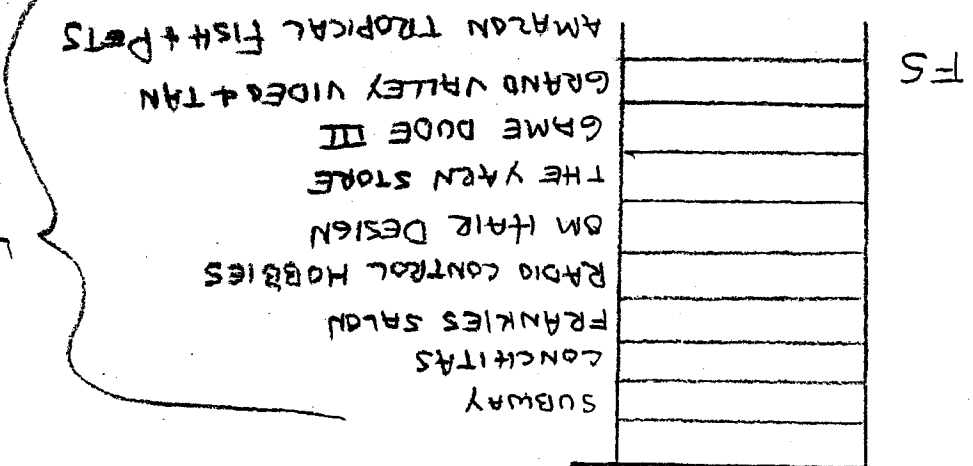 SUBWAY
CONCHITAS
FRANKIES SALON
RADIO CONTROL HOBBIES
HAIR DESIGN
THE YARN STORE
GAME DUDE III
GRAND VALLEY VIDEO & TAN
AMAZON TROPICAL FISH & PETS
FS